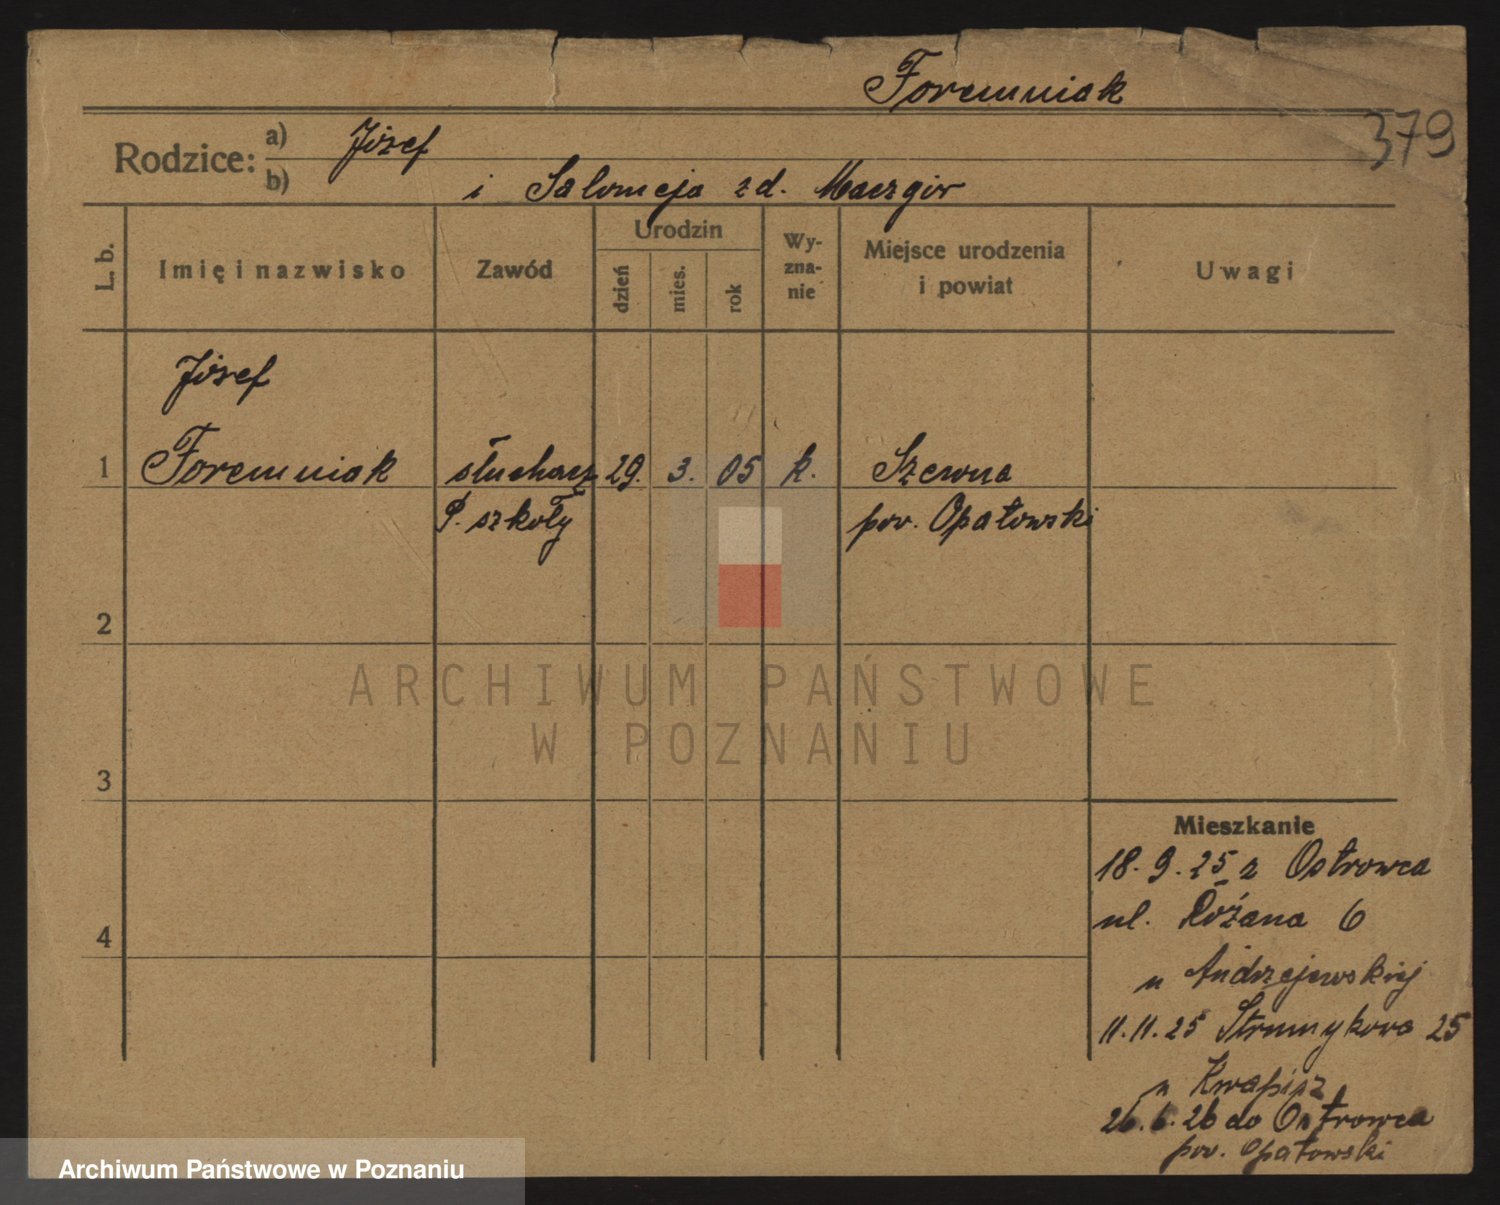 Foremniak
379
Rodzice: a) Józef
b) i Salomeja zd. Maczgór
L. b.
Imię i nazwisko
Zawód
Urodzin
dzień
mies.
rok
Wy-
zna-
nie
Miejsce urodzenia
i powiat
Uwagi
Józef
1 Foremniak słuchacz 29. 3. 05 k. Szewna
P. szkoły pow. Opatowski
2
3
4
Mieszkanie
18. 9. 25 z Ostrowca
ul. Różana 6
u Andrzejewskiej
11.11.25 Strumykowa 25
u Kwapisz
26.6.26 do Ostrowca
pow. Opatowski
ARCHIWUM PAŃSTWOWE
W POZNANIU
Archiwum Państwowe w Poznaniu